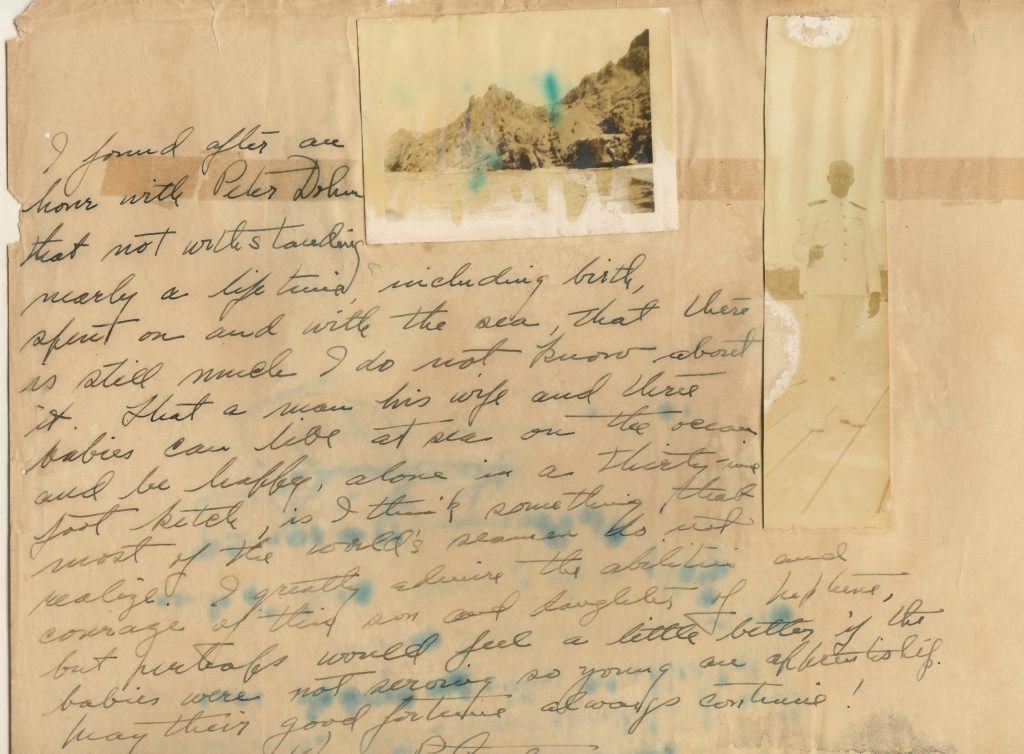 I found after an
hour with Peter Dohm
that not withstanding
nearly a life time, including birth,
spent on and with the sea, that there
is still much I do not know about
it. That a man his wife and three
babies can live at sea on the ocean
and be happy, alone in a thirty-nine
foot ketch, is I think something that
most of the world's seamen do not
realize. I greatly admire the abilities and
courage of this son and daughter of Neptune,
but perhaps would feel a little better if the
babies were not serving so young an apprentiship.
May their good fortune always continue!